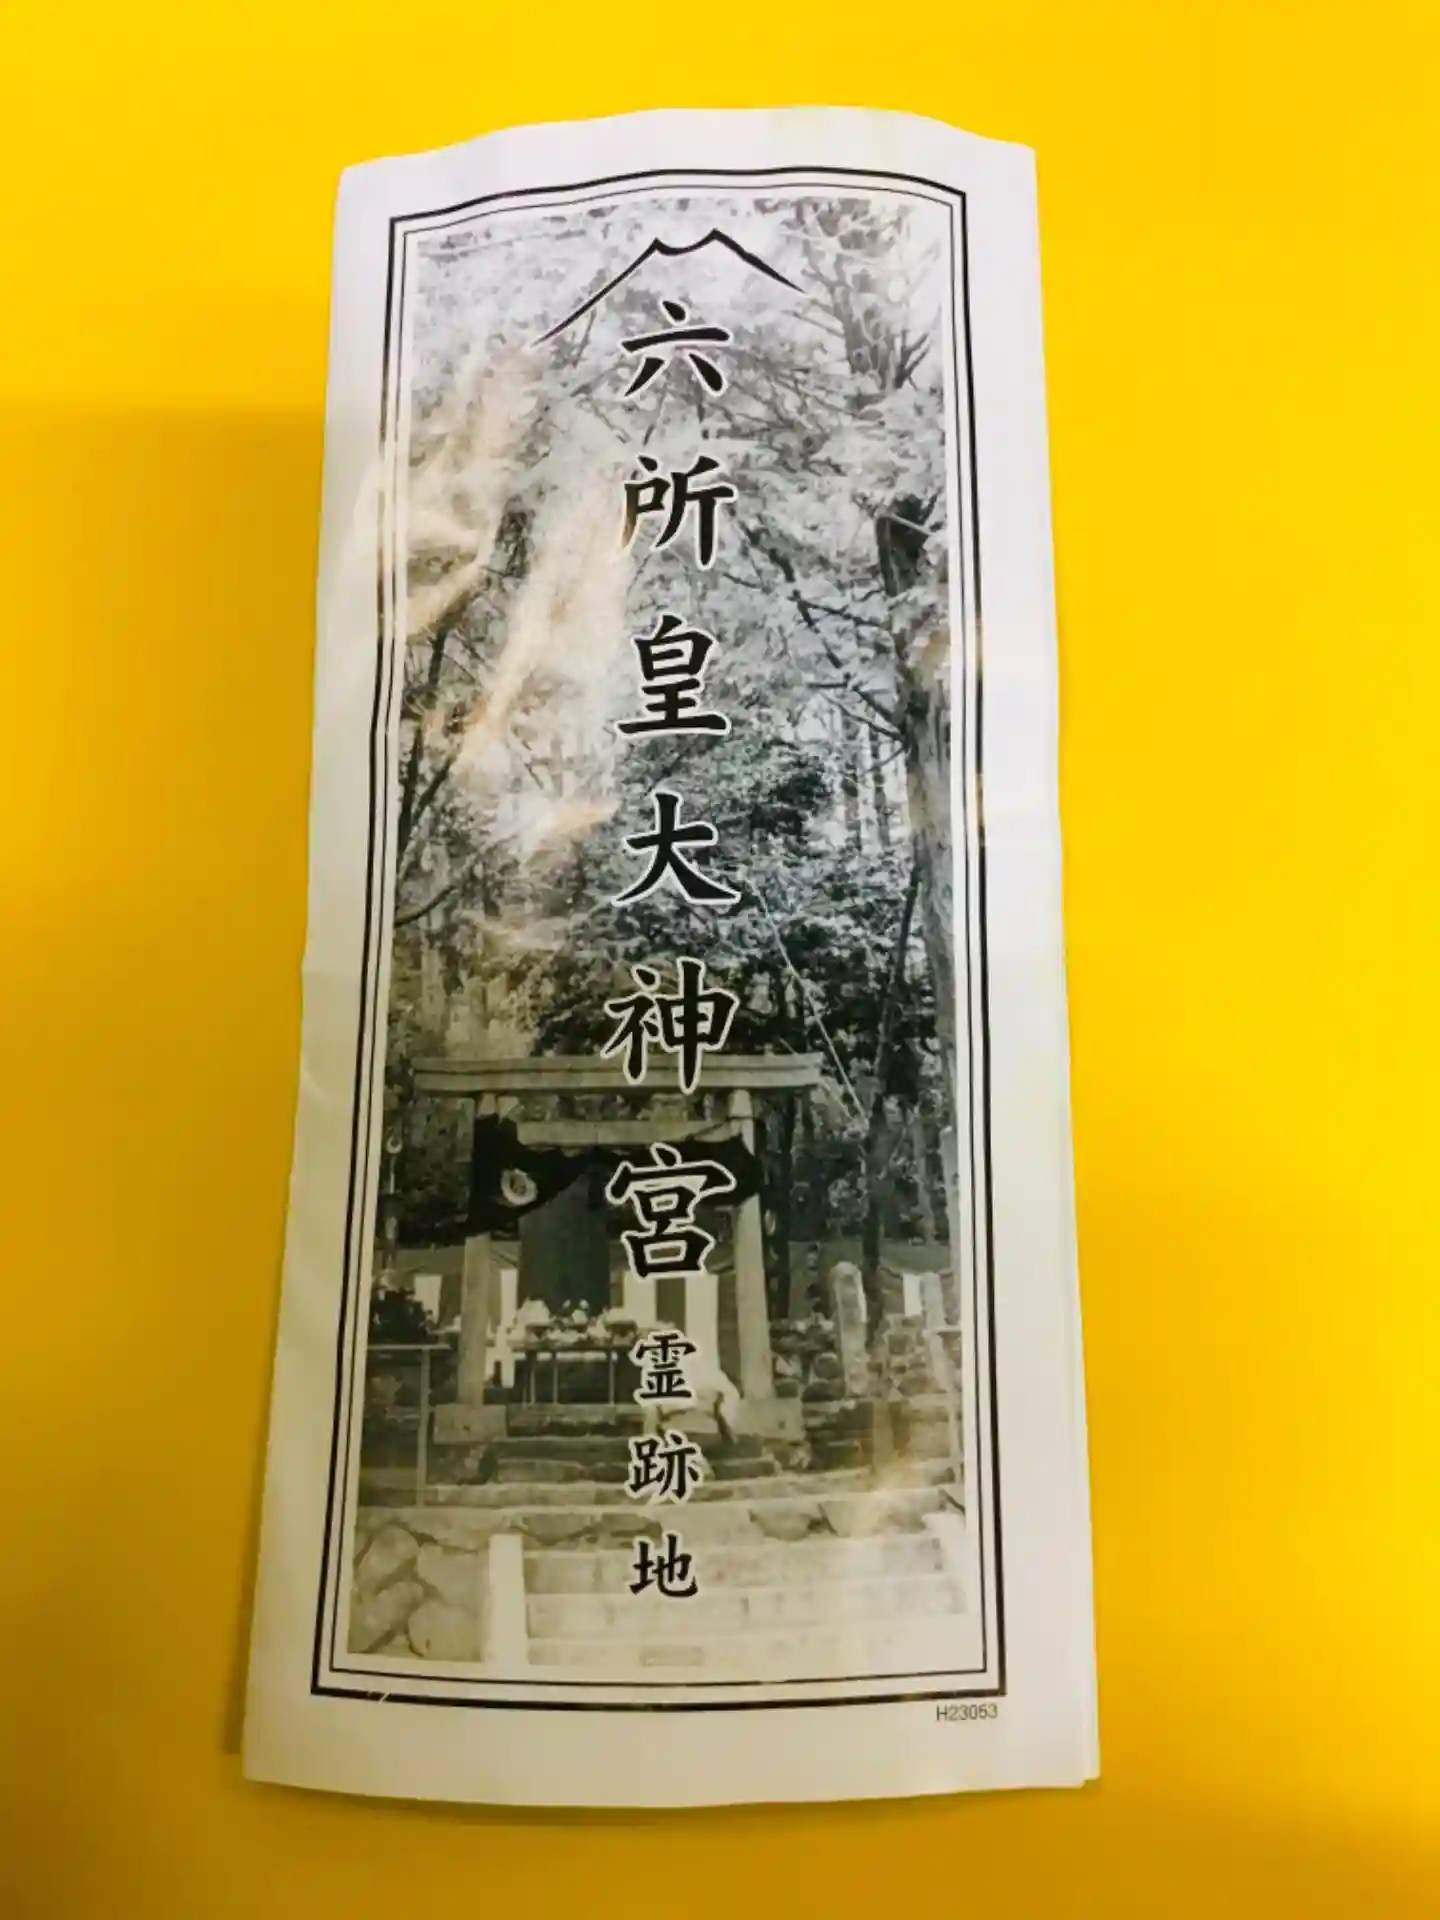 六所皇大神宮霊跡地
H23053